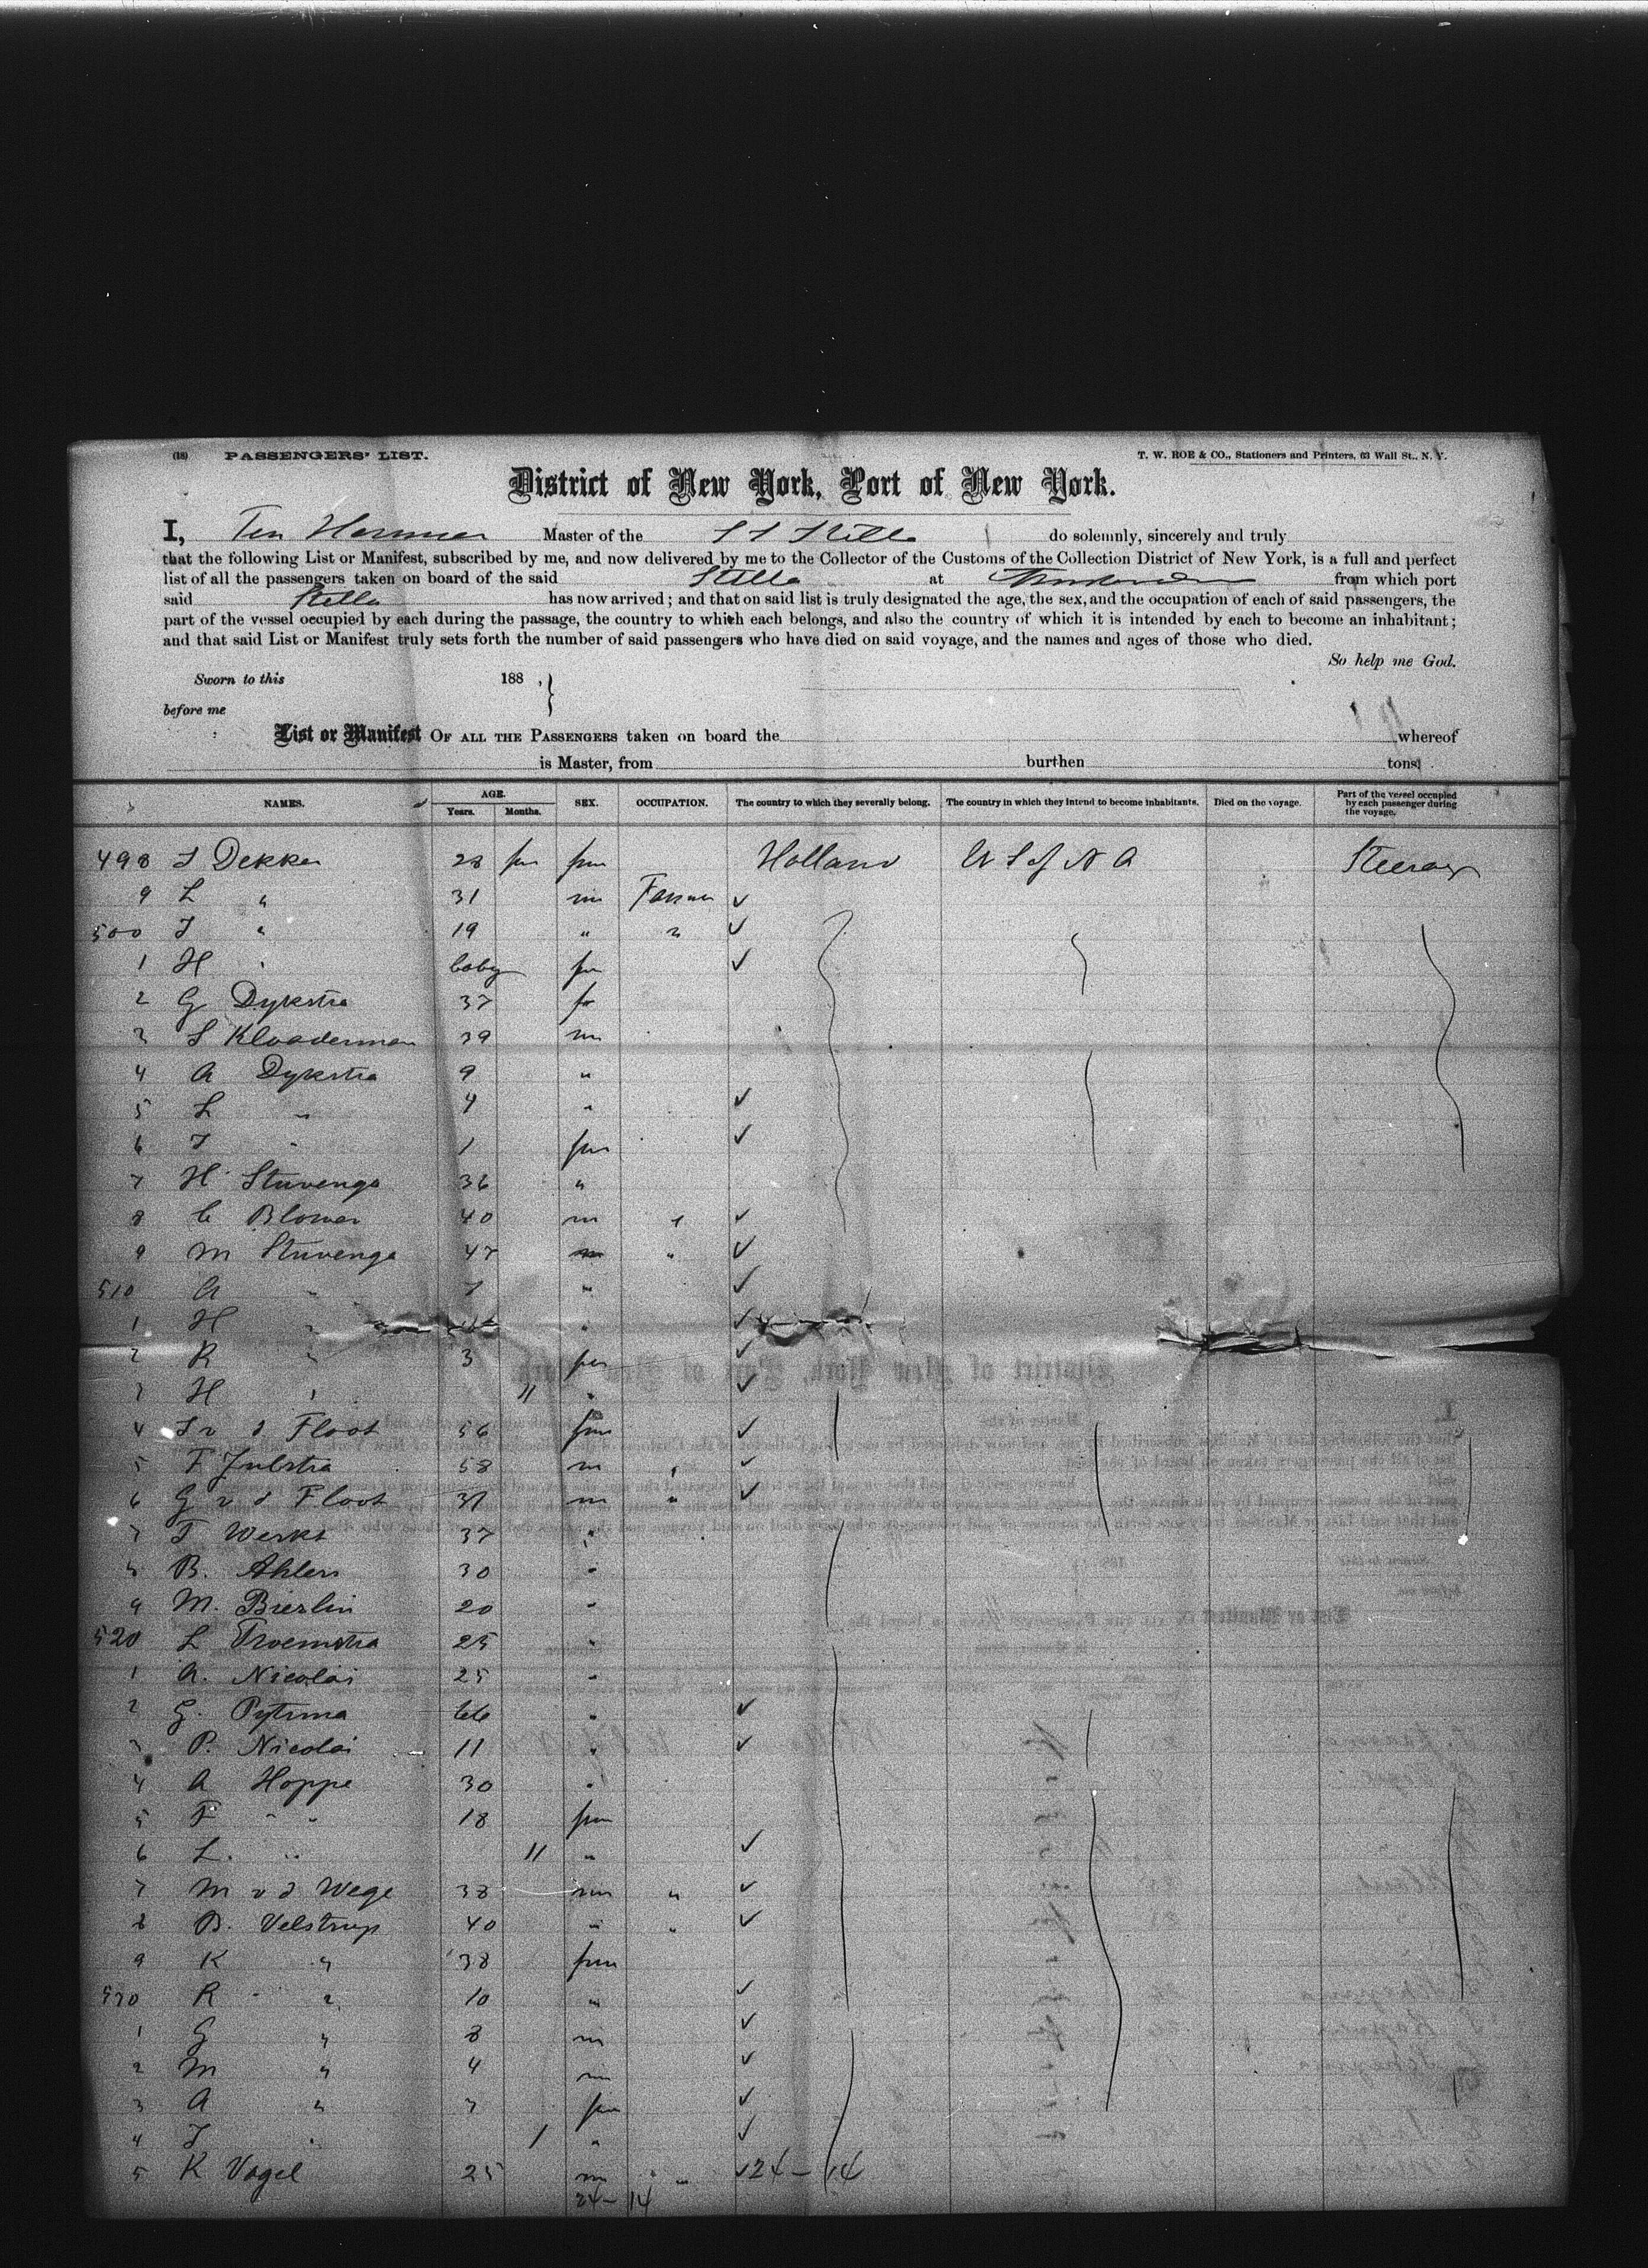 (18) PASSENGERS' LIST. T. W. ROE & CO., Stationers and Printers, 63 Wall St., N. Y.
District of New York, Port of New York.
I, Ten Master of the S S Stella do solemnly, sincerely and truly
that the following List or Manifest, subscribed by me, and now delivered by me to the Collector of the Customs of the Collection District of New York, is a full and perfect
list of all the passengers taken on board of the said Stella at from which port
said Stella has now arrived; and that on said list is truly designated the age, the sex, and the occupation of each of said passengers, the
part of the vessel occupied by each during the passage, the country to which each belongs, and also the country of which it is intended by each to become an inhabitant;
and that said List or Manifest truly sets forth the number of said passengers who have died on said voyage, and the names and ages of those who died.
So help me God.
Sworn to this 188 ,
before me
List or Manifest OF ALL THE PASSENGERS taken on board the whereof
is Master, from burthen tons
NAMES. AGE. Years. Months. SEX. OCCUPATION. The country to which they severally belong. The country in which they intend to become inhabitants. Died on the voyage. Part of the vessel occupied by each passenger during the voyage.
498 Dekker 28 fm Holland U S of N A Steerage
9 L " 31 m Farmer
500 J " 19 " "
1 H " baby fm
2 G Dykstra 37 f
3 S 39 m
4 A Dykstra 9 "
5 L " 4 "
6 J " 1 fm
7 H Stuvenga 36 "
8 C Blower 40 m "
9 M Stuvenga 47 m "
510 A " 7 "
1 H " "
2 R " 3 fm
3 H " 11 "
4 v d Floot 56 fm
5 F 58 m "
6 G v d Floot 31 m "
7 T Werks 37 "
8 B. Ahlers 30 "
9 M. Bierlin 20 "
520 L 25 "
1 A. Nicolai 25 "
2 G. Pytsma 66 "
3 P. Nicolai 11 "
4 A Hoppe 30 "
5 F " 18 fm
6 L. " 11 "
7 M v d Wege 38 m "
8 B. Velstrup 40 " "
9 K " 38 fm
530 R " 10 "
1 G " 8 m
2 M " 4 m
3 A " 3 fm
4 J " 1 "
5 K Vogel 25 m " 24 - 14
24 - 14